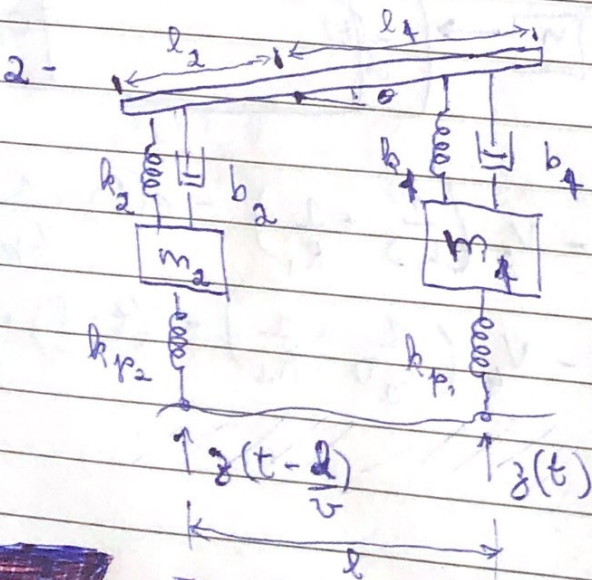 l₂ l₁
2-
θ
k₂ b₂ b₁ b₁
m₂ m₁
k_p₂ k_p₁
z(t - l/v) z(t)
l